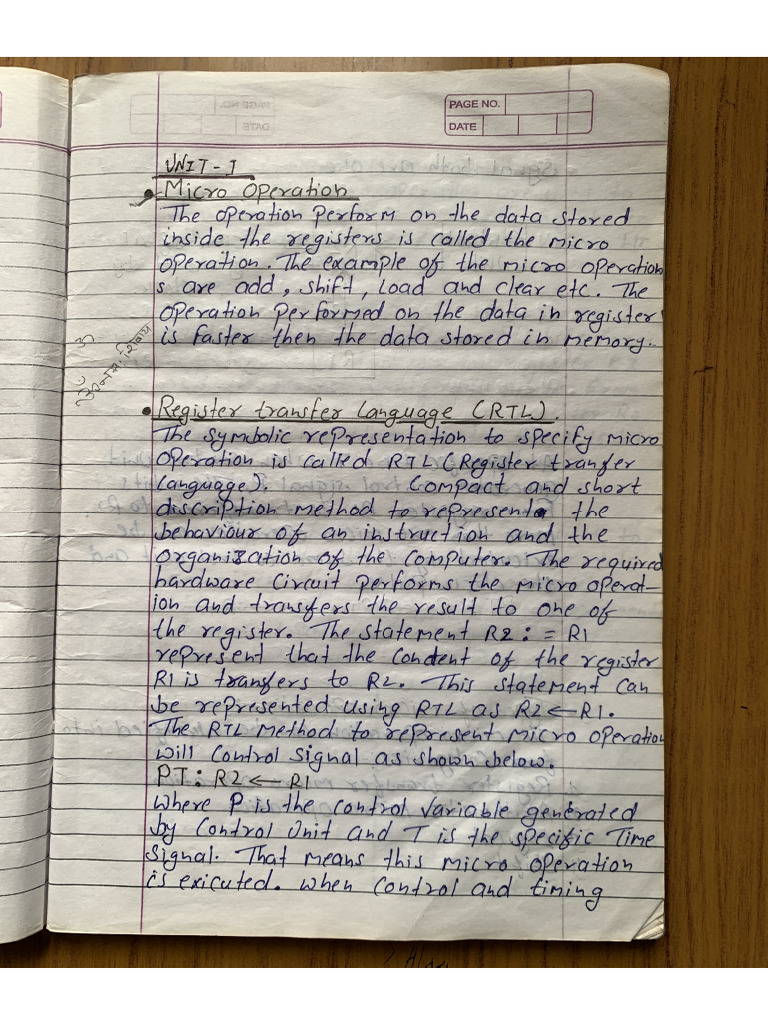 PAGE NO.
DATE
UNIT-I
Micro Operation
The operation perform on the data stored
inside the registers is called the micro
operation. The example of the micro operation
s are add, shift, load and clear etc. The
operation performed on the data in register
is faster then the data stored in memory.
Register transfer Language (RTL).
The symbolic representation to specify micro
operation is called RTL (Register transfer
Language). Compact and short
discription method to represent the
behaviour of an instruction and the
organization of the computer. The required
hardware circuit performs the micro operat-
ion and transfers the result to one of
the register. The statement R2 : = R1
represent that the content of the register
R1 is transfers to R2. This statement can
be represented using RTL as R2 ← R1.
The RTL method to represent micro operation
will control signal as shown below.
PT : R2 ← R1
where P is the control variable generated
by control unit and T is the specific Time
signal. That means this micro operation
is exicuted. when control and timing